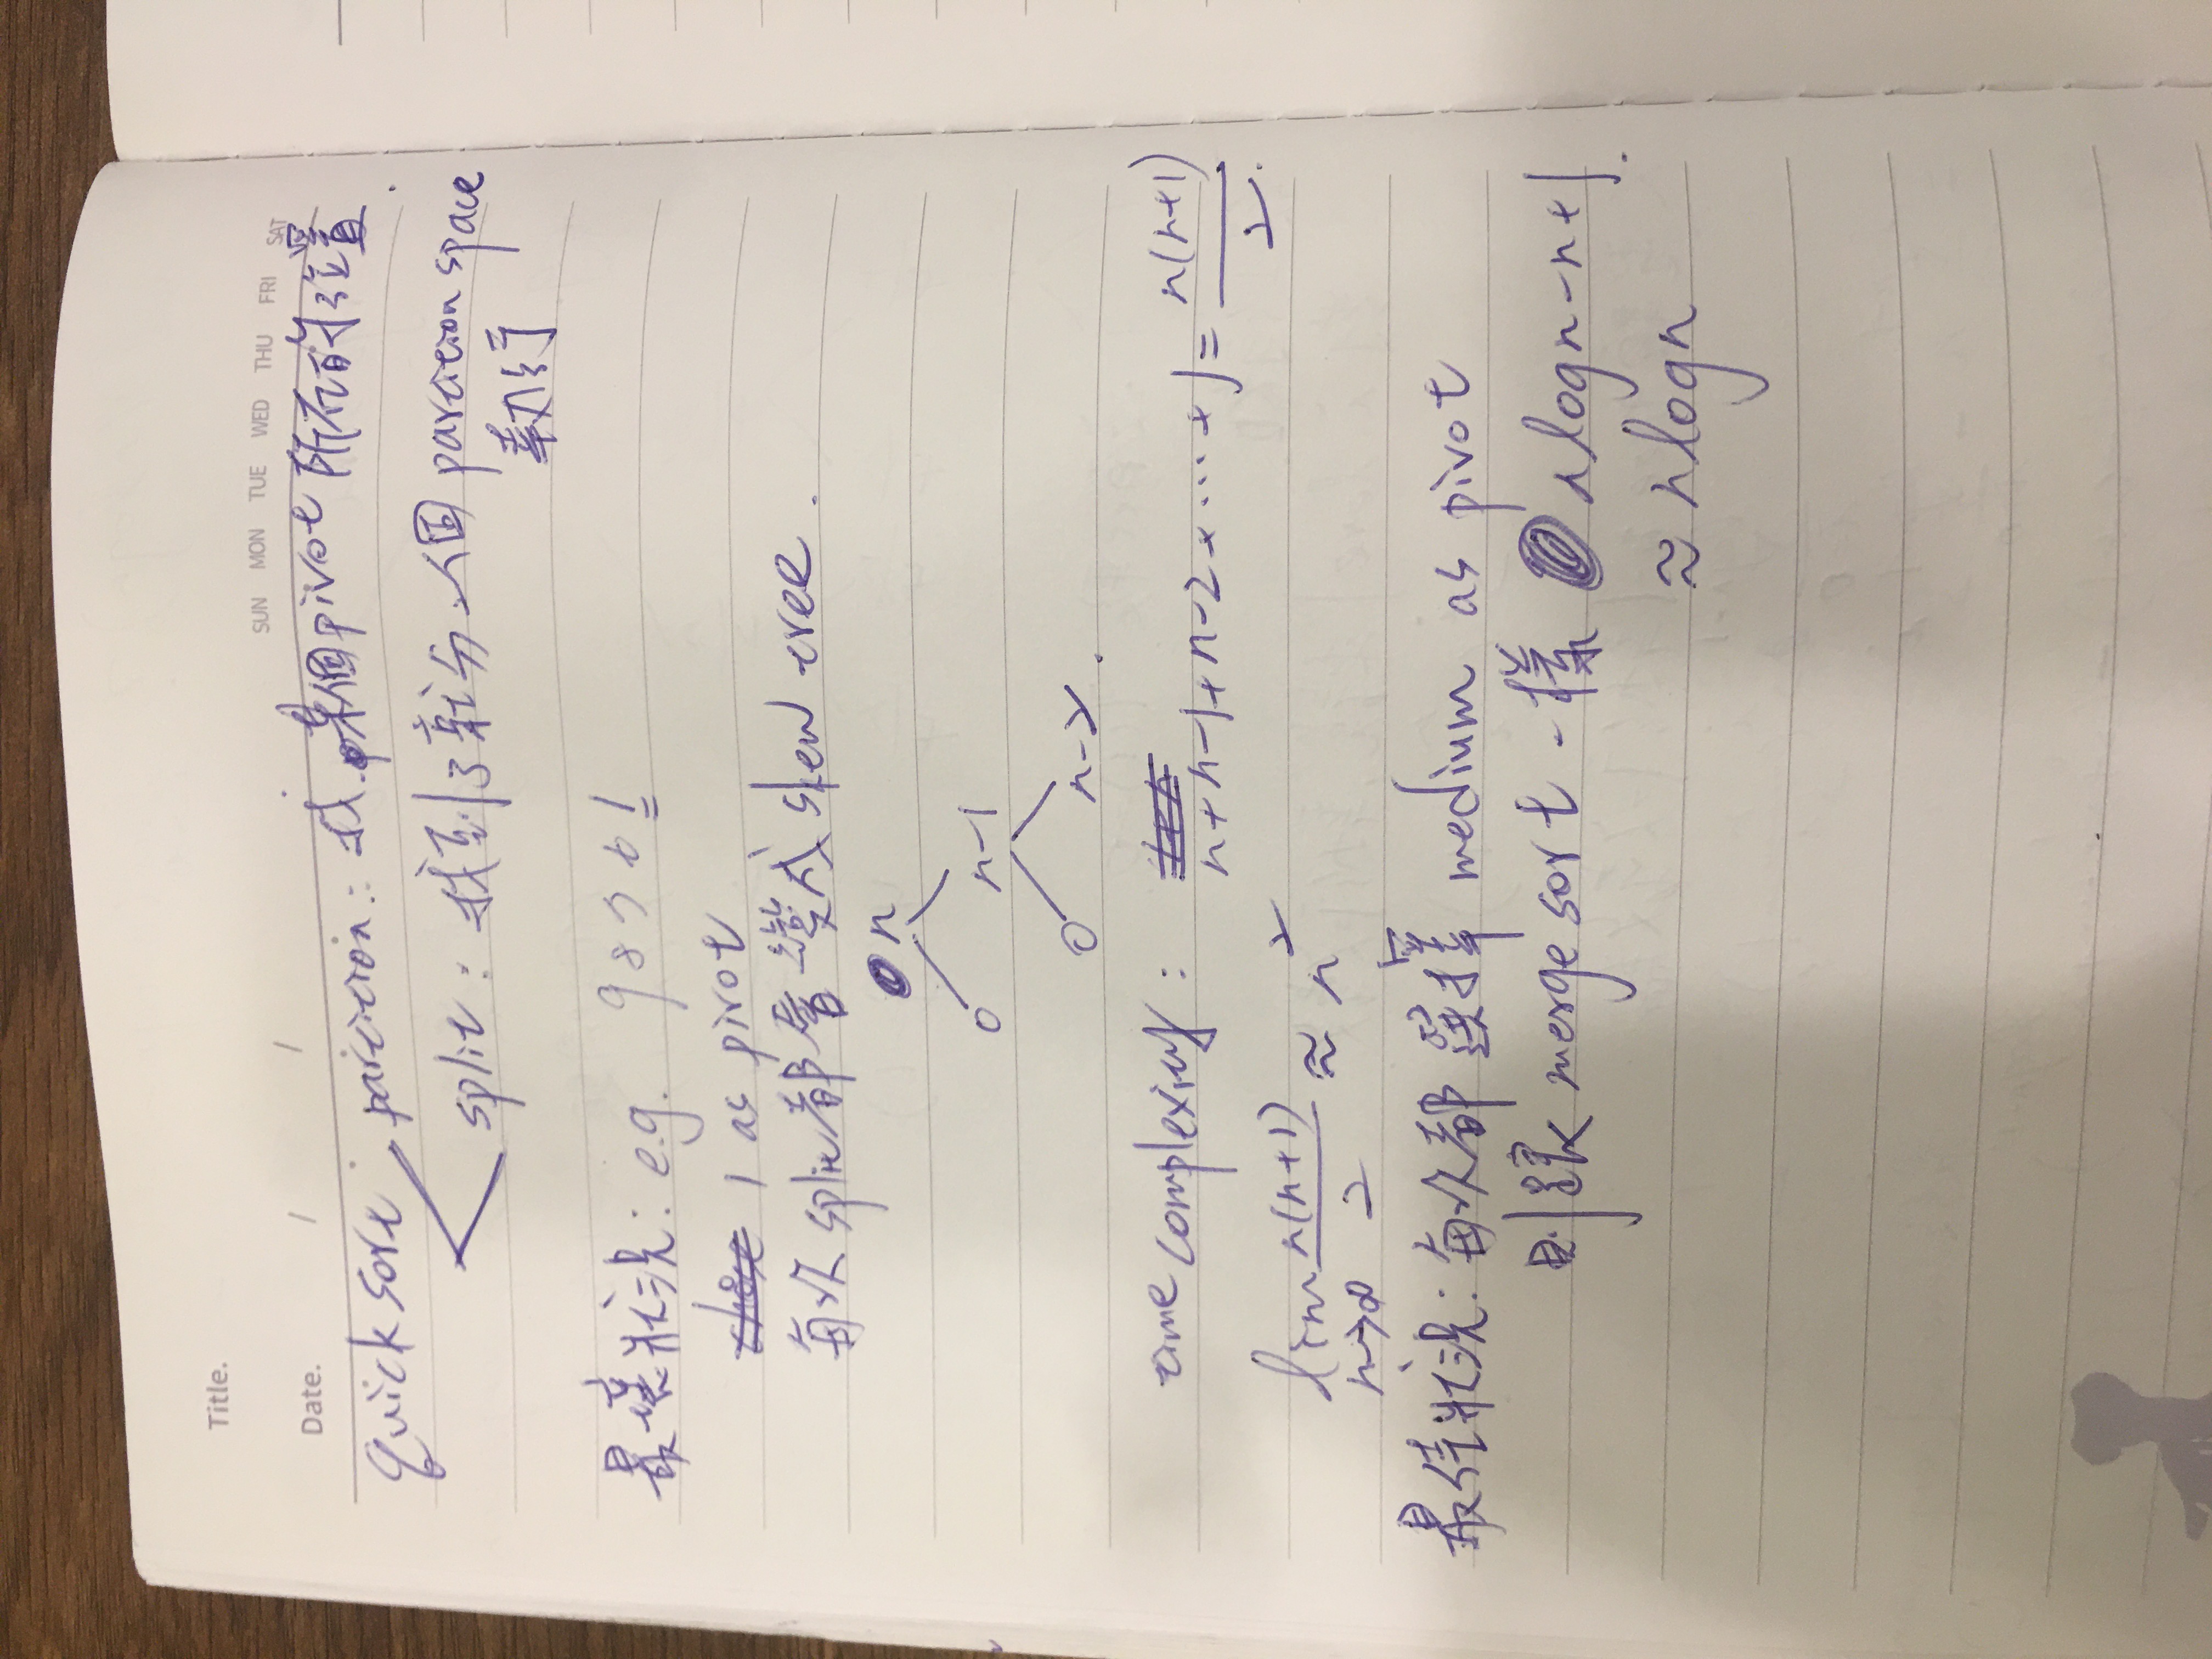 Title.
SUN MON TUE WED THU FRI SAT
Date. / /
quick sort partition : 找 某個 pivot 所在的位置
split : 找到了就分 個 partition space
執行
最壞狀況 : e.g. 9 8 7 6 1
1 as pivot
每次 split 都會變成 skew tree .
n
0 n-1
0 n-2 .
time complexity : n+n-1+n-2+...+1 = n(n+1)/2 .
lim n→∞ n(n+1)/2 ≈ n²
最佳狀況 : 每次都選擇 medium as pivot
則跟 merge sort 一樣 n log n - n + 1 .
≈ n log n